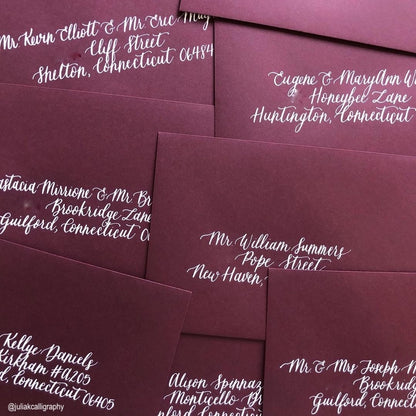 Mr Kevin Elliott & Mr Eric May
Cliff Street
Shelton, Connecticut 06484
Eugene & MaryAnn W
Honeybee Lane
Huntington, Connecticut
astacia Mirrione & Mr Br
Brookridge Lane
Guilford, Connecticut 0
Mr William Summers
Pope Street
New Haven,
Kellye Daniels
Kirkham #A205
d, Connecticut 06405
Alison Spinnaz
Monticello Dr
nford, Connecticut
Mr & Mrs Joseph M
Brookridge
Guilford, Connecticut
@juliakcalligraphy